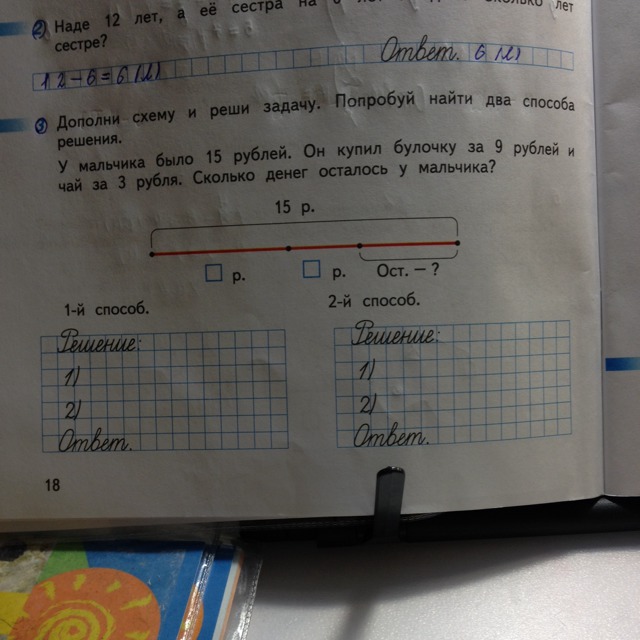 2) Наде 12 лет, а её сестра на лет
сестре?
12-6=6(л) Ответ. 6 (л)
3) Дополни схему и реши задачу. Попробуй найти два способа
решения.
У мальчика было 15 рублей. Он купил булочку за 9 рублей и
чай за 3 рубля. Сколько денег осталось у мальчика?
15 р.
р. р. Ост. – ?
1-й способ. 2-й способ.
Решение: Решение:
1) 1)
2) 2)
Ответ. Ответ.
18